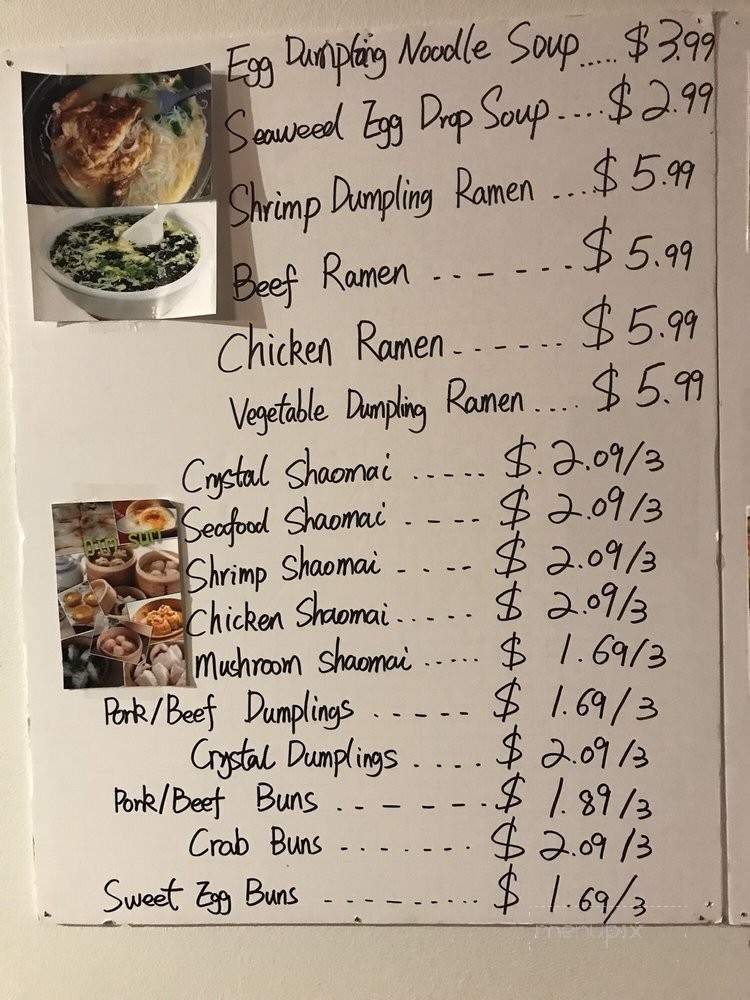 Egg Dumpling Noodle Soup..... $3.99
Seaweed Egg Drop Soup.....$2.99
Shrimp Dumpling Ramen ...$5.99
Beef Ramen -------$5.99
Chicken Ramen------ $5.99
Vegetable Dumpling Ramen.... $5.99
Crystal Shaomai ..... $.2.09/3
Seafood Shaomai ---- $2.09/3
DIM SUM
Shrimp Shaomai ---- $2.09/3
Chicken Shaomai..... $2.09/3
Mushroom Shaomai ..... $1.69/3
Pork/Beef Dumplings ----- $1.69/3
Crystal Dumplings .... $2.09/3
Pork/Beef Buns -------$1.89/3
Crab Buns ------- $2.09/3
Sweet Egg Buns ---------- $1.69/3
menupix